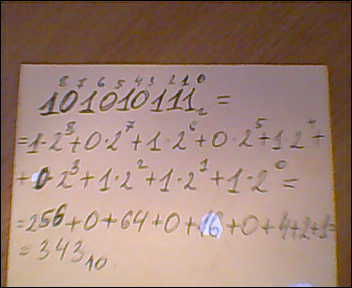 8 7 6 5 4 3 2 1 0
101010111₂ =
=1·2⁸+0·2⁷+1·2⁶+0·2⁵+1·2⁴+
+0·2³+1·2²+1·2¹+1·2⁰=
=256+0+64+0+16+0+4+2+1=
=343₁₀